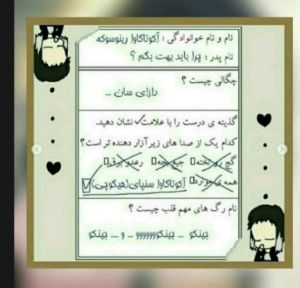 نام و نام خانوادگی : آکوتاگاوا رینوسوکه
نام پدر : چرا باید بهت بگم ؟
چگالی چیست ؟
دازای سان ...
گذینه ی درست را با علامت✓ نشان دهید.
کدام یک از صدا های زیر آزار دهنده تر است؟
گچ روی تخته جیغ بچه رعد و برق
همه ی موارد آکوتاگاوا سنپای(هیگوچی) ✓
نام رگ های مهم قلب چیست ؟
جینکو ... جینکووووووو ... و .... جینکو